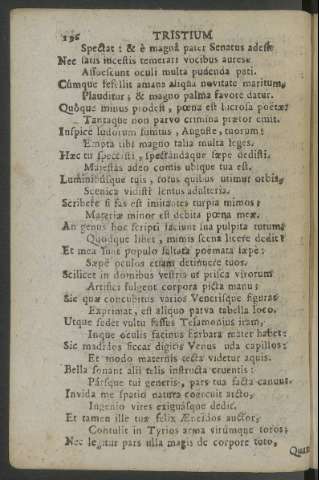 196 TRISTIUM
Spectat: & è magnâ pater Senatus adest
Nec satis incestis temerari vocibus aures:
Assuescunt oculi multa pudenda pati.
Cùmque fefellit amans aliqua novitate maritum,
Plauditur; & magno palma favore datur.
Quòque minus prodest, pœna est lucrosa poëtæ:
Tantaque non parvo crimina prætor emit.
Inspice ludorum sumtus, Auguste, tuorum;
Empta tibi magno talia multa leges.
Hæc tu spectasti, spectandaque sæpe dedisti.
Majestas adeo comis ubique tua est.
Luminibusque tuis, totus quibus utimur orbis,
Scenica vidisti lentus adulteria.
Scribere si fas est imitantes turpia mimos;
Materiæ minor est debita pœna meæ.
An genus hoc scripti faciunt sua pulpita tutum?
Quodque libet, mimis scena licere dedit?
Et mea sunt populo saltata poëmata sæpe:
Sæpe oculos etiam detinuere tuos.
Scilicet in domibus vestris ut prisca virorum
Artifici fulgent corpora picta manu;
Sic quæ concubitus varios Venerisque figuras
Exprimat, est aliquo parva tabella loco.
Utque sedet vultu fassus Telamonius iram,
Inque oculis facinus barbara mater habet:
Sic madidos siccat digitis Venus uda capillos;
Et modo maternis tecta videtur aquis.
Bella sonant alii telis instructa cruentis:
Parsque tui generis, pars tua facta canunt.
Invida me spatio natura coërcuit arcto,
Ingenio vires exiguasque dedit.
Et tamen ille tuæ felix Æneidos auctor,
Contulit in Tyrios arma virúmque toros;
Nec legitur pars ulla magis de corpore toto,
Quam